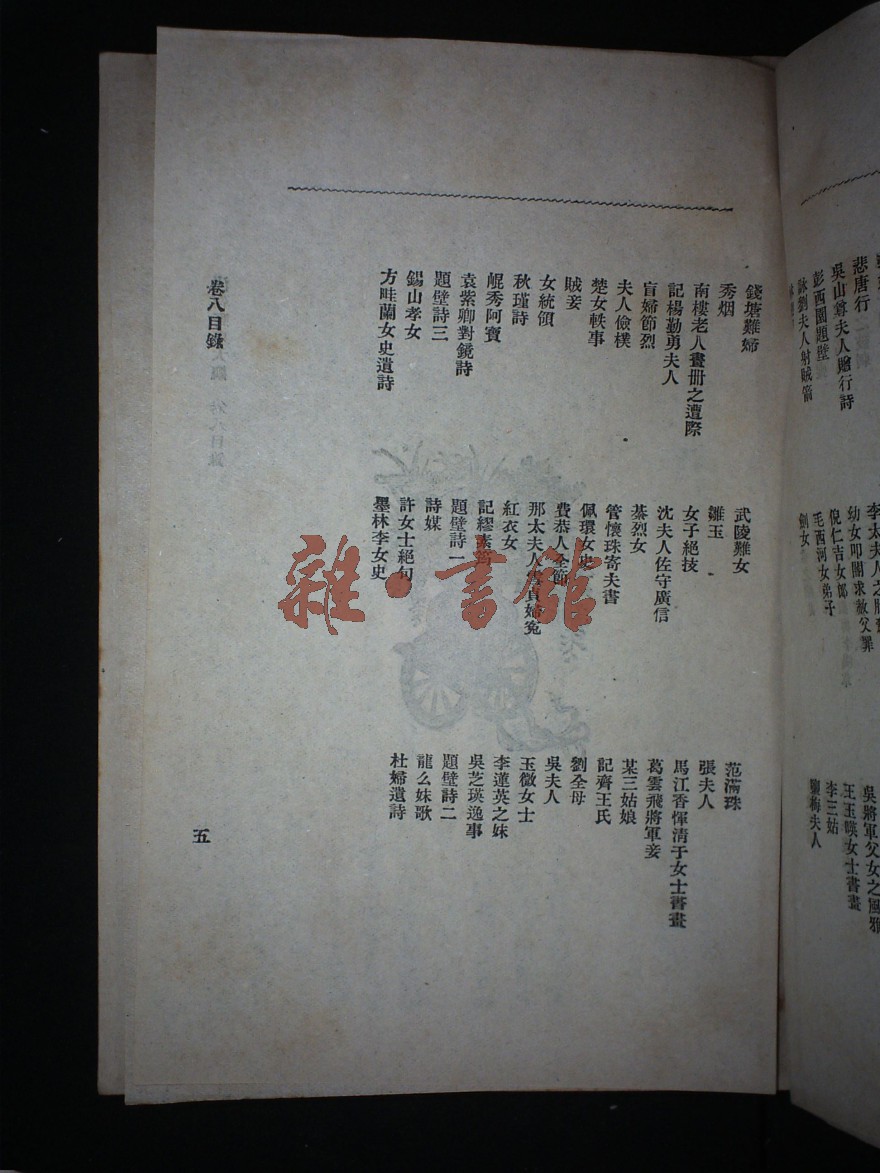 悲唐行
吳山尊夫人贈行詩
彭西園題壁
詠劉夫人射賊箭
幼女叩閽求赦父罪
倪仁吉女郎
毛西河女弟子
劍女
吳將軍父女之風雅
王玉暎女士書畫
李三姑
錢塘難婦
武陵難女
范滿珠
秀烟
雛玉
張夫人
南樓老人畫册之遭際
女子絕技
馬江香惲清于女士書畫
記楊勤勇夫人
沈夫人佐守廣信
葛雲飛將軍妾
盲婦節烈
綦烈女
某三姑娘
夫人儉樸
管懷珠寄夫書
記齊王氏
楚女軼事
佩環女史
劉全母
賊妾
費恭人全節
吳夫人
女統領
那太夫人
貞婦冤
玉微女士
秋瑾詩
紅衣女
李蓮英之妹
鯤秀阿寶
記繆素筠
吳芝瑛逸事
袁紫卿對鏡詩
題壁詩一
題壁詩二
題壁詩三
詩媒
龍么妹歌
錫山孝女
許女士絕句
杜婦遺詩
方畦蘭女史遺詩
墨林李女史
卷八目錄
五
雜·書館